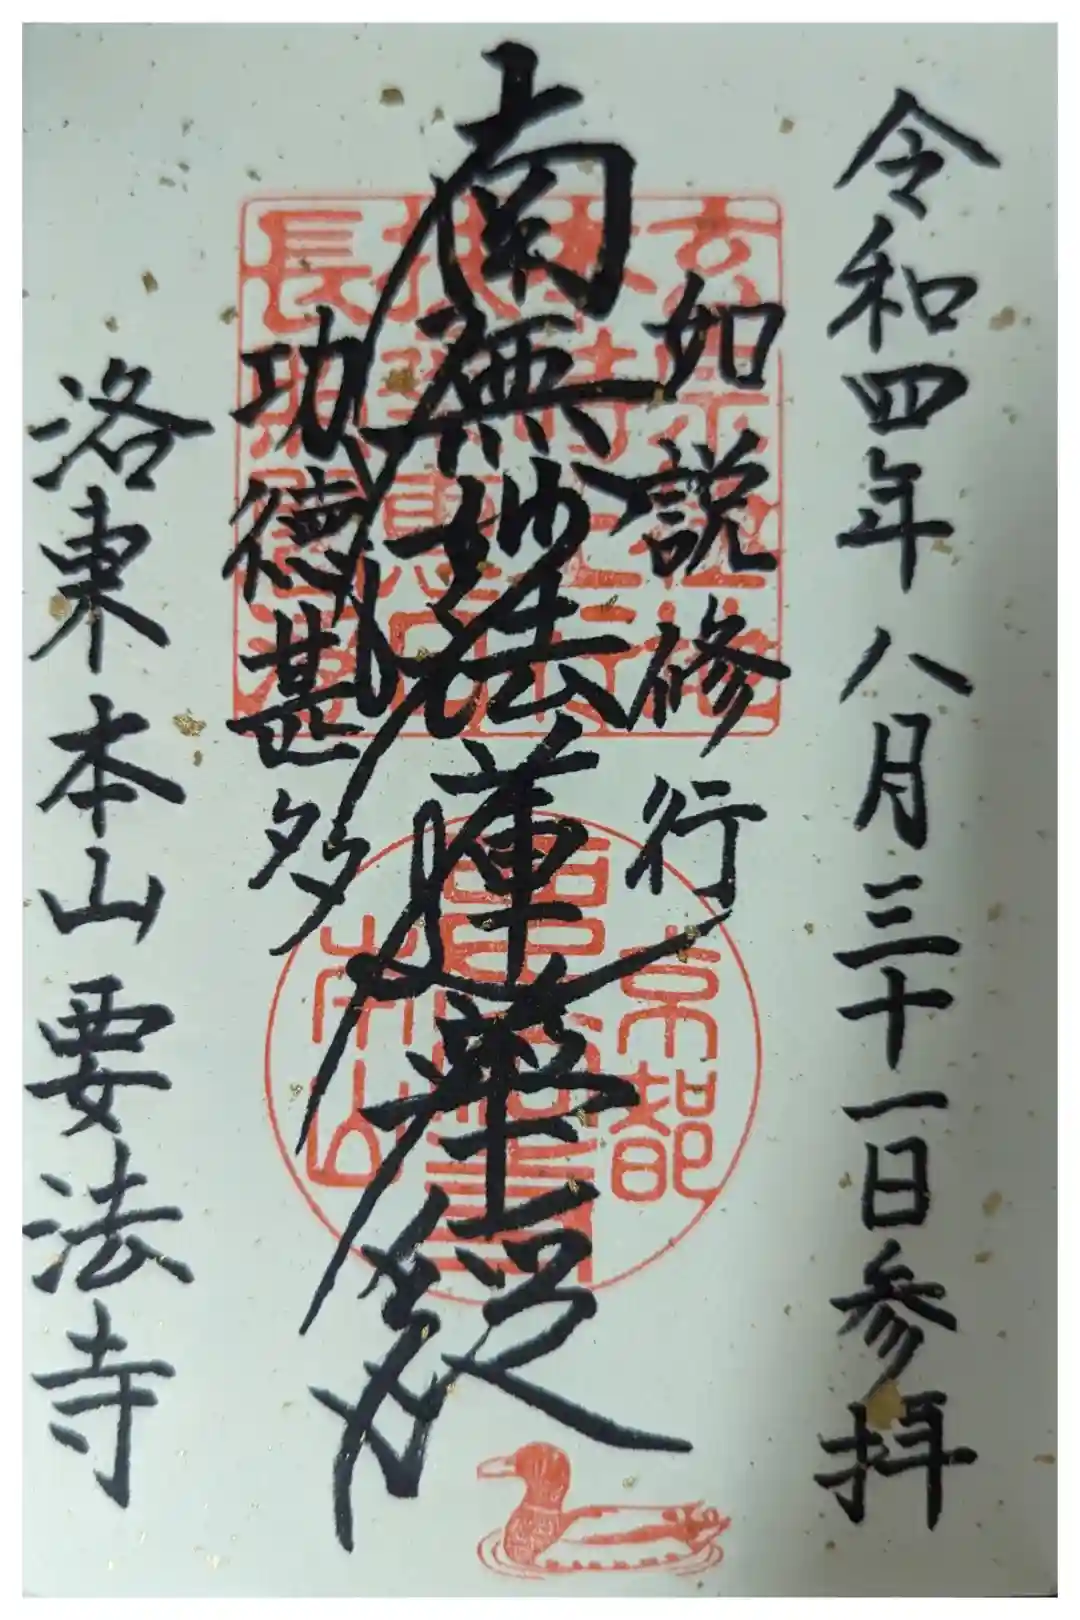 令和四年八月三十一日参拝
如説修行
南無妙法蓮華経
功徳甚多
洛東本山要法寺
京都
本山